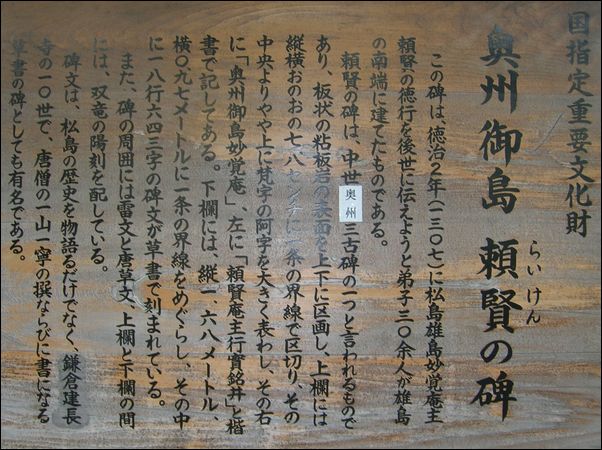 国指定重要文化財
奥州御島 頼賢の碑
らいけん
この碑は、徳治2年(一三〇七)に松島雄島妙覚庵主
頼賢の徳行を後世に伝えようと弟子三〇余人が雄島
の南端に建てたものである。
頼賢の碑は、中世奥州三古碑の一つと言われるもので
あり、板状の粘板岩の表面を上下に区画し、上欄には
縦横おのおの七、八センチに一条の界線で区切り、その
中央よりやや上に梵字の阿字を大きく表わし、その右
に「奥州御島妙覚庵」、左に「頼賢庵主行實銘并」と楷
書で記してある。下欄には、縦一、六八メートル、
横〇、九七メートルに一条の界線をめぐらし、その中
に一八行六四三字の碑文が草書で刻まれている。
また、碑の周囲には雷文と唐草文、上欄と下欄の間
には、双竜の陽刻を配している。
碑文は、松島の歴史を物語るだけでなく、鎌倉建長
寺の一〇世で、唐僧の一山一寧の撰ならびに書になる
草書の碑としても有名である。